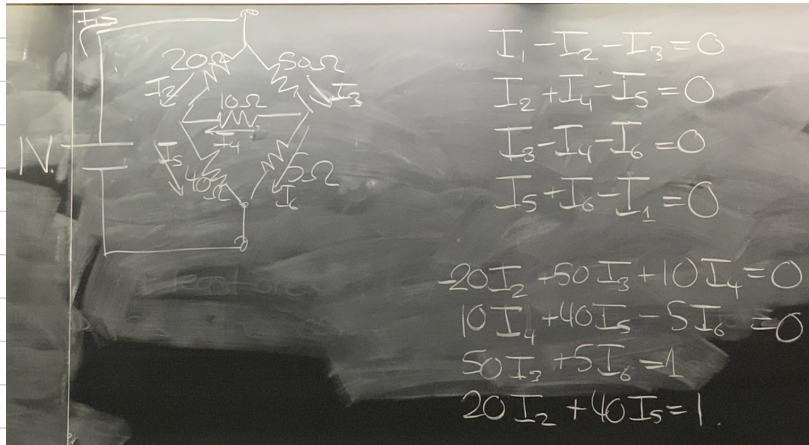 20Ω 50Ω
I₂ I₃
10Ω
I₄
I₅
40Ω 5Ω
I₆
I₁ - I₂ - I₃ = 0
I₂ + I₄ - I₅ = 0
I₃ - I₄ - I₆ = 0
I₅ + I₆ - I₁ = 0
-20I₂ + 50I₃ + 10I₄ = 0
10I₄ + 40I₅ - 5I₆ = 0
50I₃ + 5I₆ = 1
20I₂ + 40I₅ = 1.